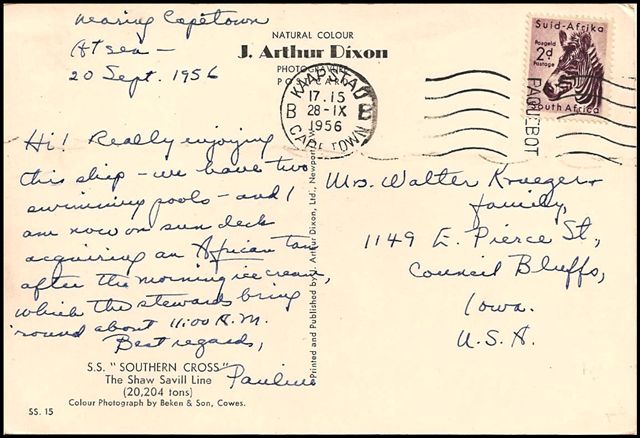 nearing Capetown
At sea —
20 Sept. 1956
NATURAL COLOUR
J. Arthur Dixon
PHOTOGRAVURE
POSTCARD
KAAPSTAD
17.15
B 28-IX B
1956
CAPE TOWN
Suid-Afrika
Posgeld
2d
Postage
South Africa
PAQUEBOT
Hi! Really enjoying
this ship - we have two
swimming pools - and I
am now on sun deck
acquiring an African tan
after the morning ice cream,
which the stewards bring
'round about 11:00 A.M.
Best regards,
Pauline
Printed and Published by J. Arthur Dixon, Ltd., Newport
Mrs. Walter Krueger +
family,
1149 E. Pierce St.,
Council Bluffs,
Iowa.
U.S.A.
S.S. "SOUTHERN CROSS"
The Shaw Savill Line
(20,204 tons)
Colour Photograph by Beken & Son, Cowes.
SS. 15